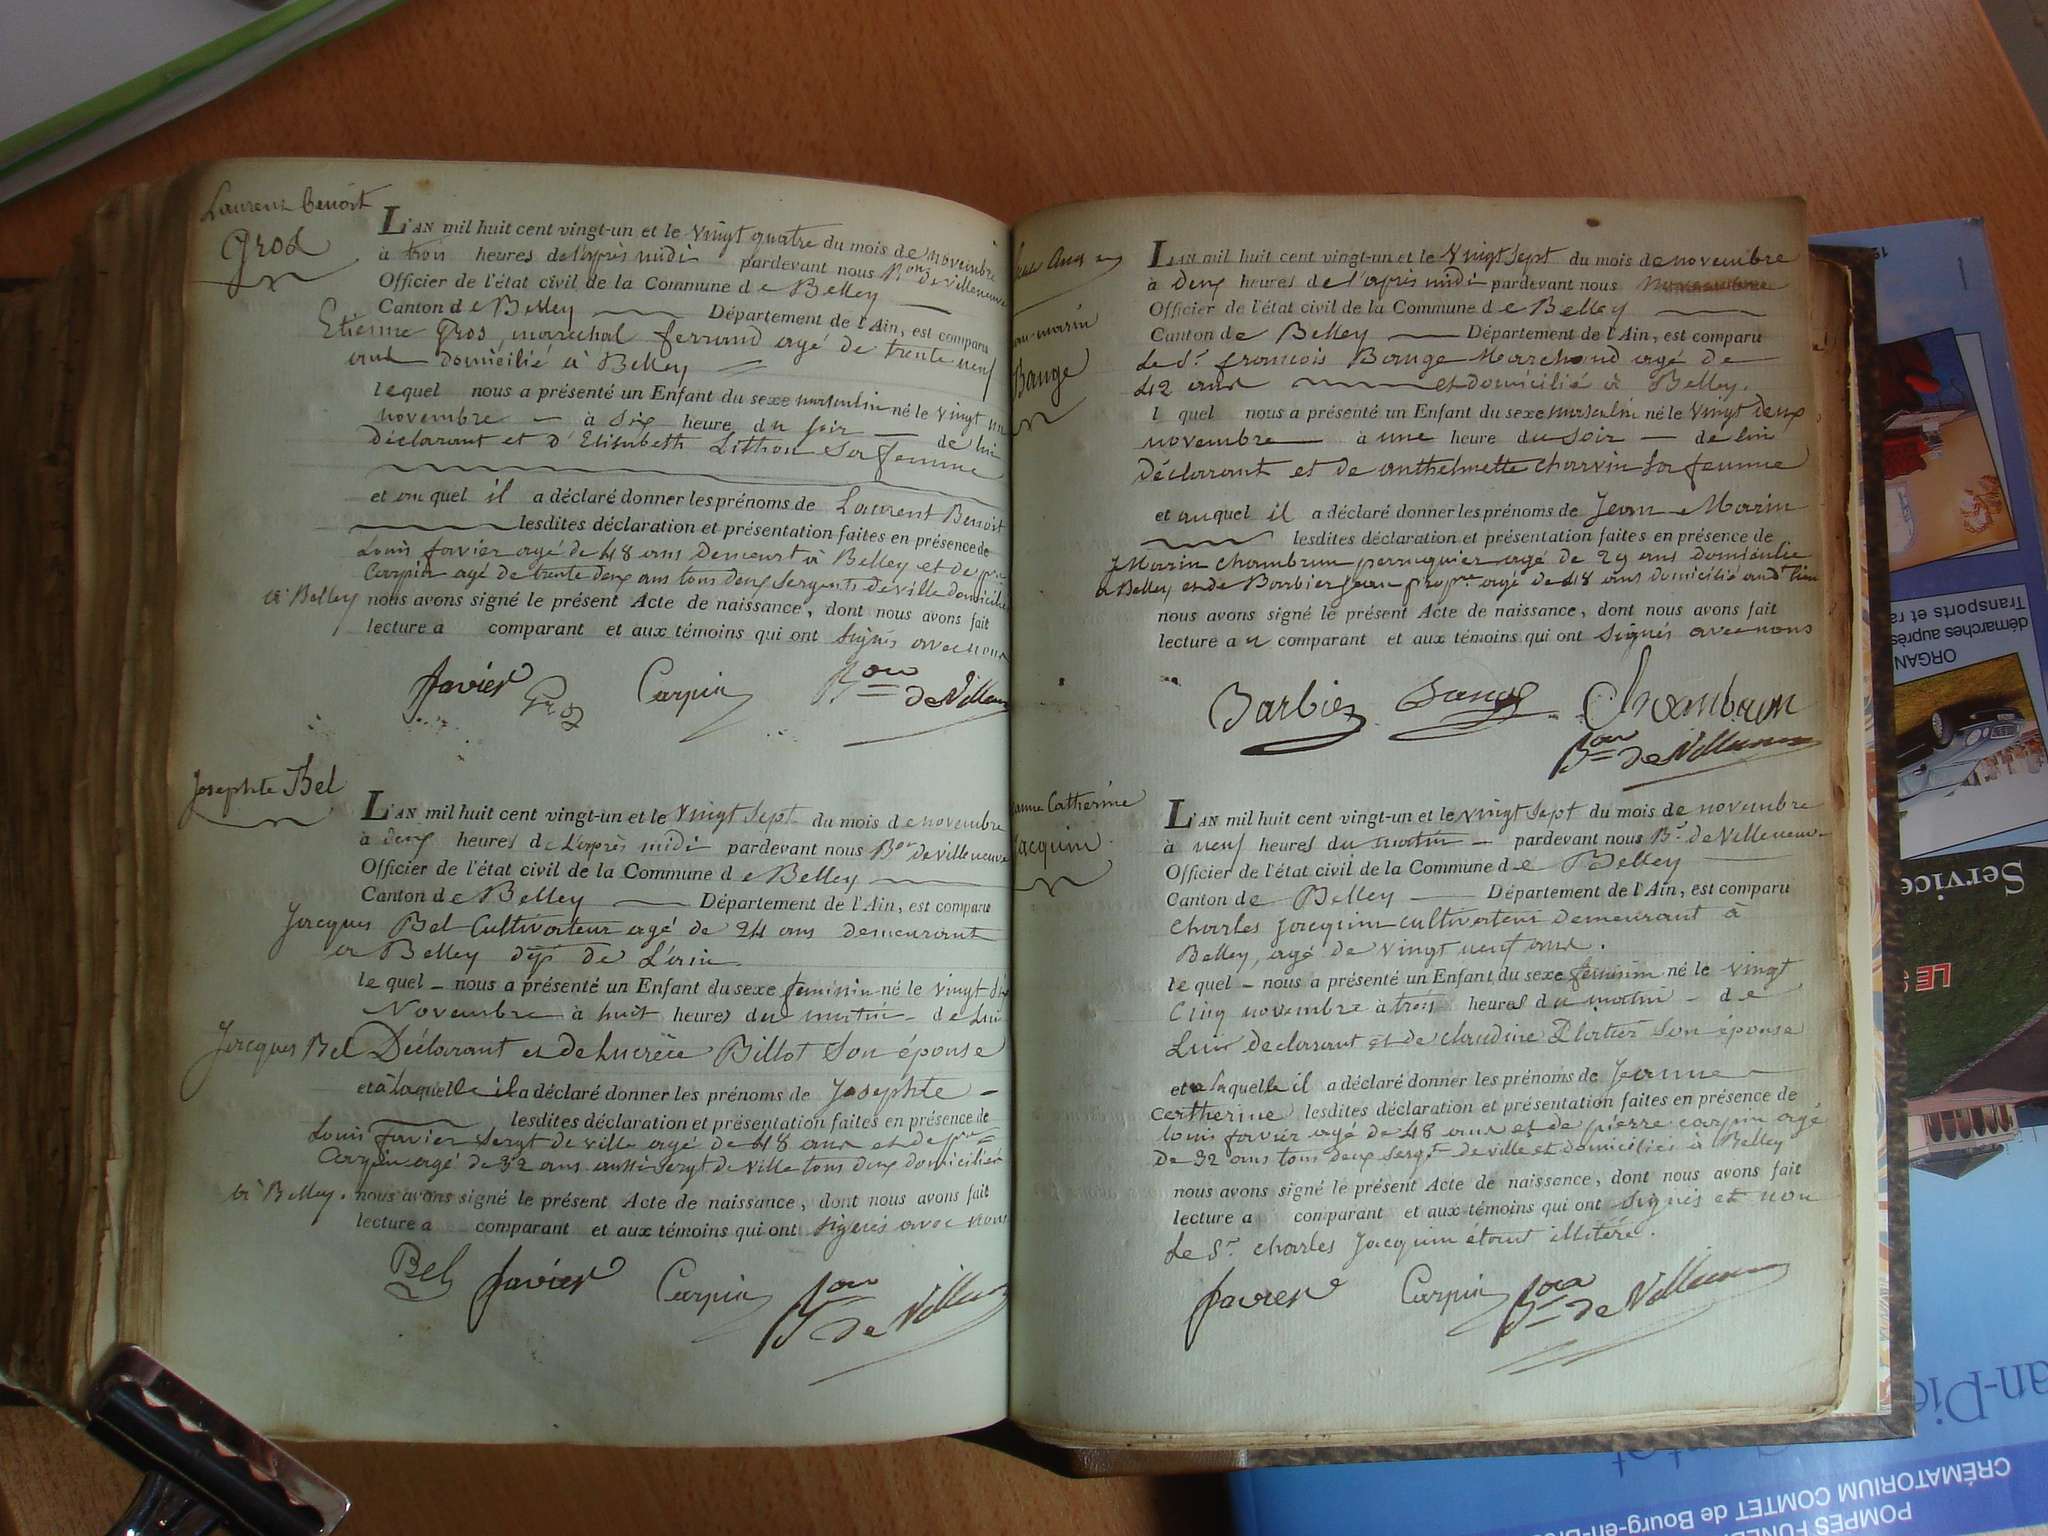 Laurent Benoit
Gros
L'AN mil huit cent vingt-un et le vingt quatre du mois de novembre
à trois heures de l'après midi pardevant nous Bon de Villeneuve
Officier de l'état civil de la Commune de Belley
Canton de Belley Département de l'Ain, est comparu
Etienne Gros, marechal ferrand agé de trente neuf
ans domicilié à Belley
lequel nous a présenté un Enfant du sexe masculin né le vingt un
novembre à six heure du soir de lui
déclarant et d'Elisabeth Lithou sa femme
et au quel il a déclaré donner les prénoms de Laurent Benoit
lesdites déclaration et présentation faites en présence de
Louis favier agé de 48 ans demeurt à Belley et de pre
Carpin agé de trente deux ans tous deux sergents de ville domiciliés
à Belley nous avons signé le présent Acte de naissance, dont nous avons fait
lecture a comparant et aux témoins qui ont signés avec nous
favier Gros Carpin Bon de Villeneuve
Josephte Bel
L'AN mil huit cent vingt-un et le vingt sept du mois de novembre
à deux heures de l'après midi pardevant nous Bon de villeneuve
Officier de l'état civil de la Commune de Belley
Canton de Belley Département de l'Ain, est comparu
Jacques Bel Cultivateur agé de 24 ans demeurant
à Belley dept de L'ain
le quel - nous a présenté un Enfant du sexe feminin né le vingt
Novembre à huit heures du matin - de lui
Jacques Bel Déclarant et de Lucrèce Billot son épouse
et à laquelle il a déclaré donner les prénoms de Josephte -
lesdites déclaration et présentation faites en présence de
Louis favier sergt de ville agé de 48 ans et de pre
Carpin agé de 32 ans aussi sergt de ville tous deux domiciliés
à Belley. nous avons signé le présent Acte de naissance, dont nous avons fait
lecture a comparant et aux témoins qui ont signés avec nous
Bel favier Carpin Bon de Villeneuve
Bauge
L'AN mil huit cent vingt-un et le vingt sept du mois de novembre
à deux heures de l'après midi pardevant nous
Officier de l'état civil de la Commune de Belley
Canton de Belley Département de l'Ain, est comparu
Le Sr. francois Bauge Marchand agé de
42 ans et domicilié à Belley.
l quel nous a présenté un Enfant du sexe masculin né le vingt deux
novembre à une heure du soir - de lui
Déclarant et de anthelmette charvin sa femme
et auquel il a déclaré donner les prénoms de Jean Marin
lesdites déclaration et présentation faites en présence de
Marin Chambrun perruquier agé de 29 ans domicilié
a Belley et de Barbier Jean propre agé de 48 ans domicilié aud. lieu
nous avons signé le présent Acte de naissance, dont nous avons fait
lecture au comparant et aux témoins qui ont signés avec nous
Barbier Bauge Chambrun
Bon de Villeneuve
anne Catherine
Jacquin
L'AN mil huit cent vingt-un et le vingt sept du mois de novembre
à neuf heures du matin - pardevant nous Bn de Villeneuve
Officier de l'état civil de la Commune de Belley
Canton de Belley Département de l'Ain, est comparu
Charles Jacquin cultivateur demeurant à
Belley, agé de vingt neuf ans.
le quel - nous a présenté un Enfant du sexe feminin né le vingt
Cinq novembre à trois heures du matin - de
Lui declarant et de claudine Platier son épouse
et a laquelle il a déclaré donner les prénoms de Jeanne
Catherine lesdites déclaration et présentation faites en présence de
louis favier agé de 48 ans et de pierre carpin agé
De 32 ans tous deux sergt de ville et domiciliés à Belley
nous avons signé le présent Acte de naissance, dont nous avons fait
lecture a comparant et aux témoins qui ont signés et non
le Sr. charles Jacquin étant illitéré.
favier Carpin Bon de Villeneuve
démarches auprès
Transports et ra
ORGAN
Service
LE S
POMPES FUNÉ
CRÉMATORIUM COMTET de Bourg-en-Bre